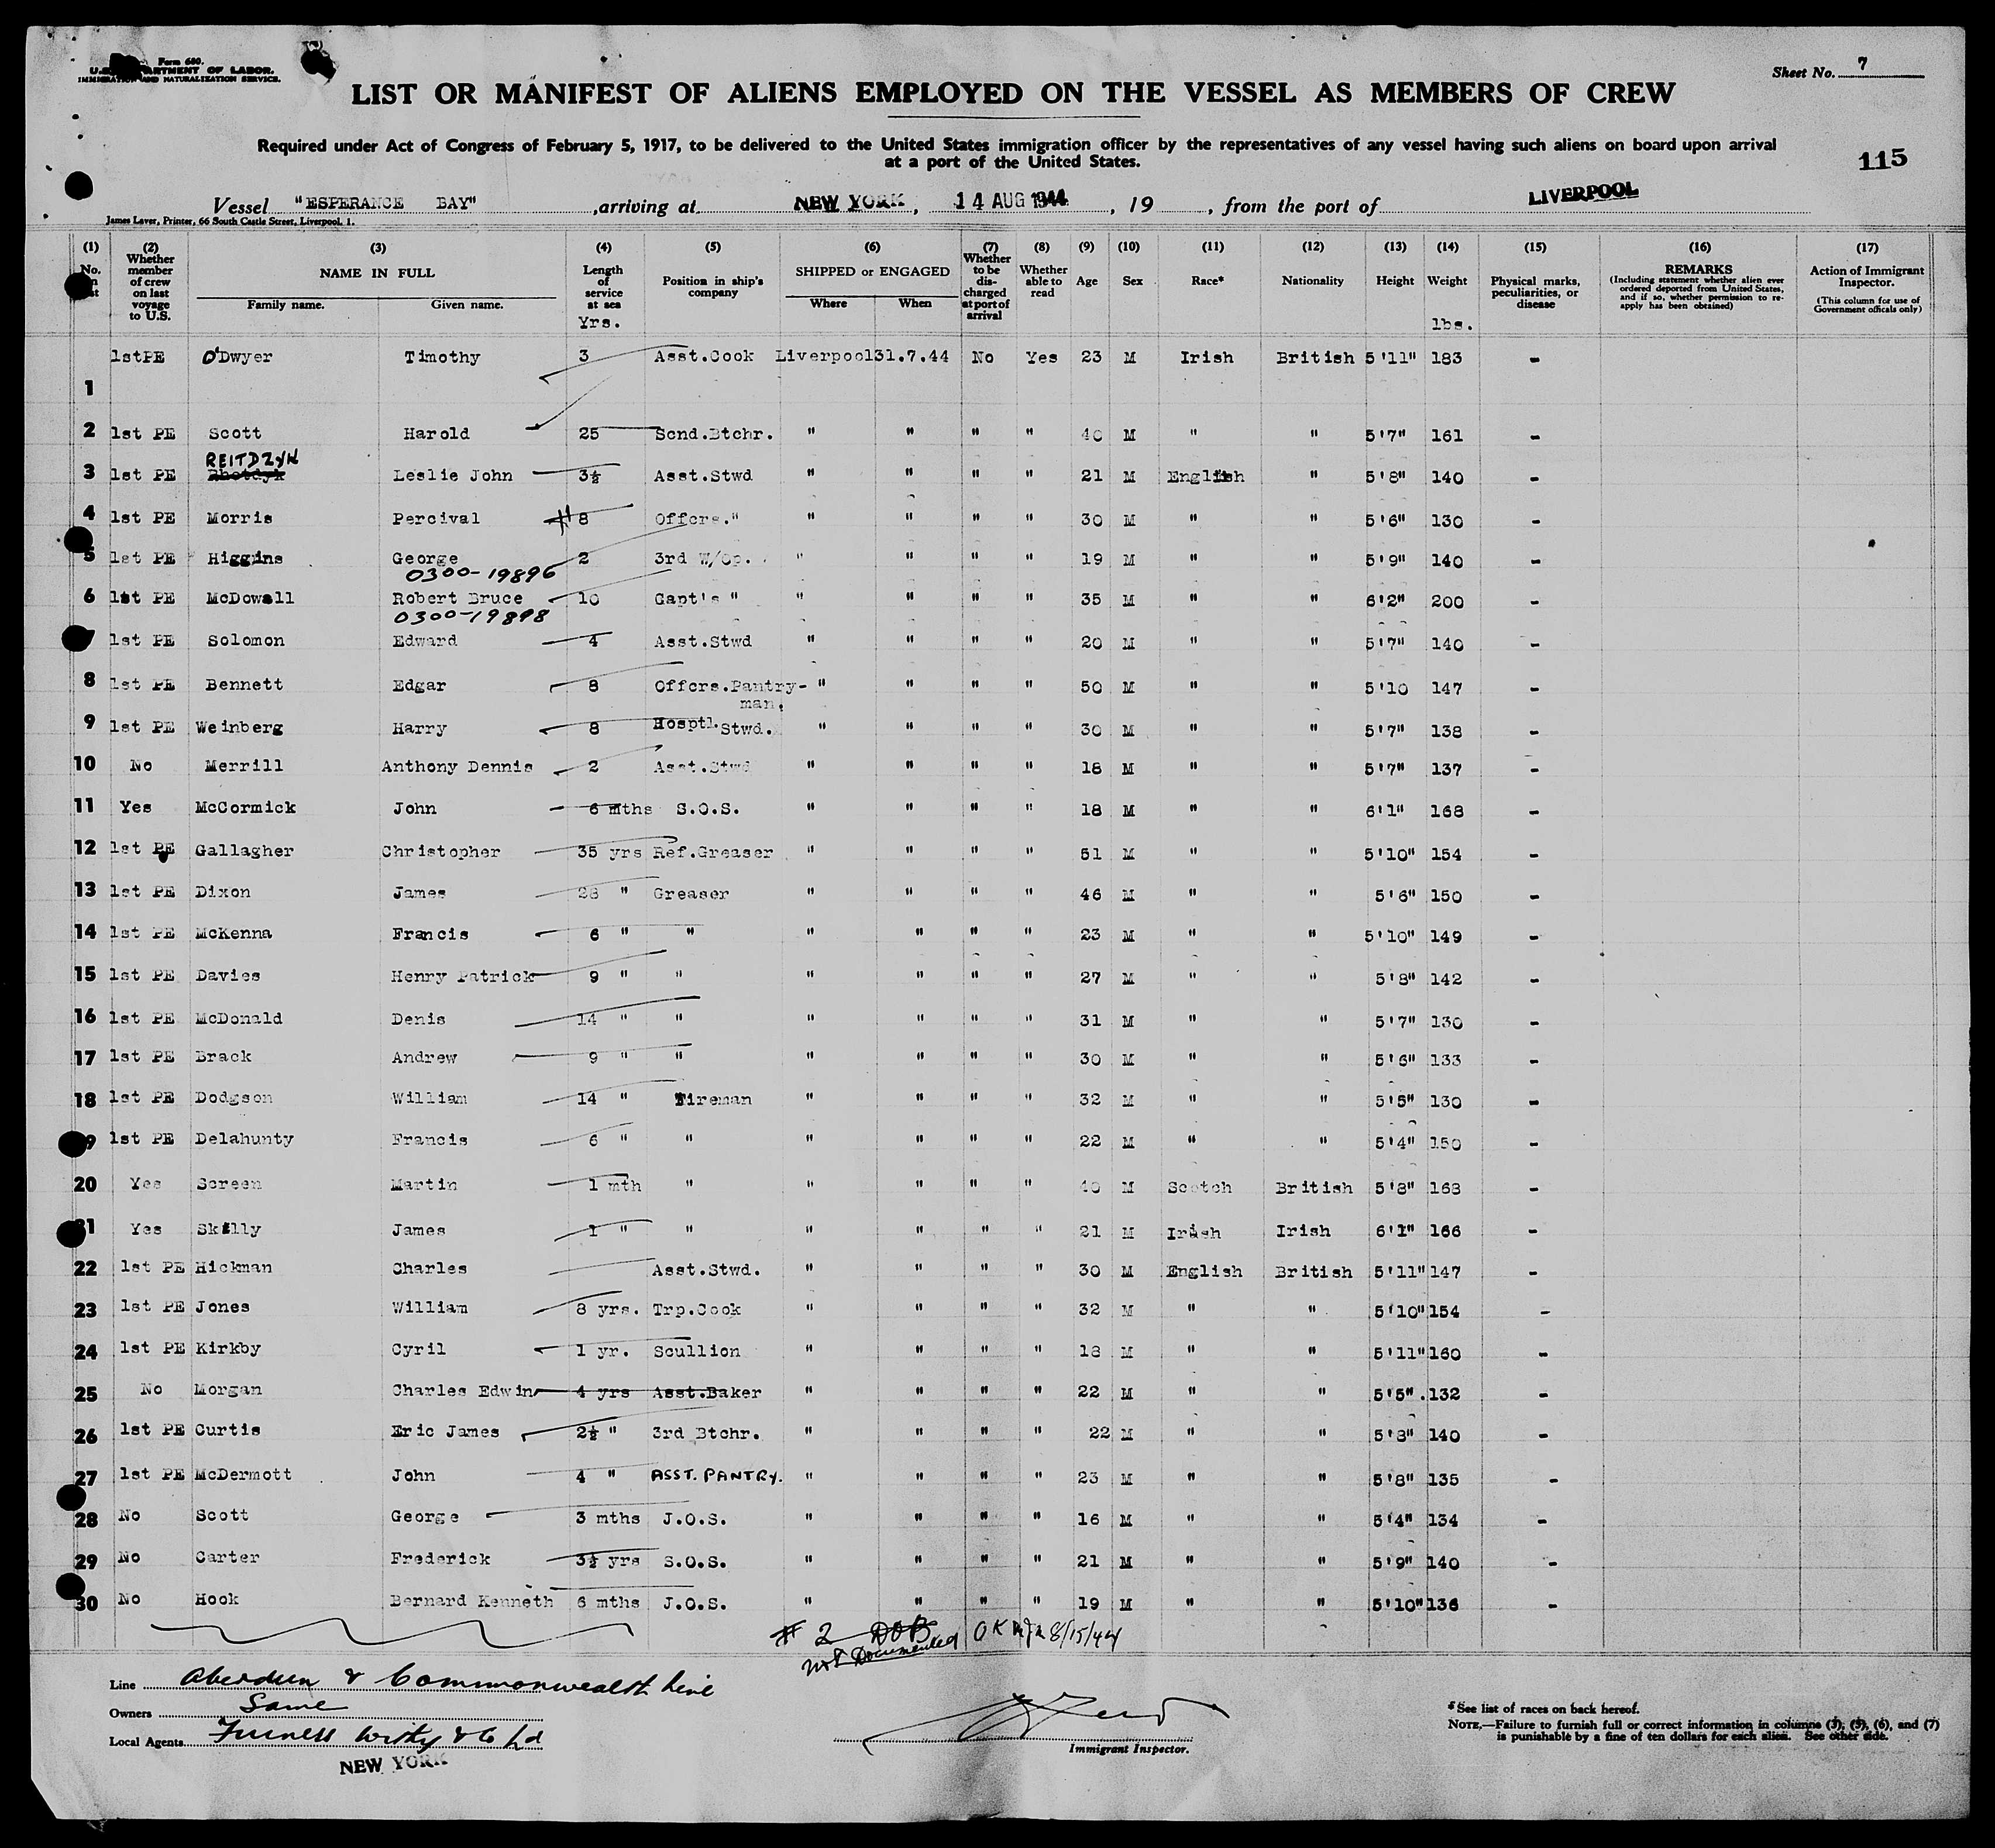 Form 680.
U.S. DEPARTMENT OF LABOR.
IMMIGRATION AND NATURALIZATION SERVICE.
Sheet No. 7
LIST OR MANIFEST OF ALIENS EMPLOYED ON THE VESSEL AS MEMBERS OF CREW
Required under Act of Congress of February 5, 1917, to be delivered to the United States immigration officer by the representatives of any vessel having such aliens on board upon arrival
at a port of the United States.
115
Vessel "ESPERANCE BAY" , arriving at NEW YORK , 14 AUG 1944 , 19 , from the port of LIVERPOOL
James Laver, Printer, 66 South Castle Street, Liverpool, 1.
(1) (2) (3) (4) (5) (6) (7) (8) (9) (10) (11) (12) (13) (14) (15) (16) (17)
No. Whether member of crew on last voyage to U.S. NAME IN FULL Family name. Given name. Length of service at sea Yrs. Position in ship's company SHIPPED or ENGAGED Where When Whether to be discharged at port of arrival Whether able to read Age Sex Race* Nationality Height Weight lbs. Physical marks, peculiarities, or disease REMARKS (Including statement whether alien ever ordered deported from United States, and if so, whether permission to re-apply has been obtained) Action of Immigrant Inspector. (This column for use of Government officals only)
1 1stPE O'Dwyer Timothy 3 Asst.Cook Liverpool 31.7.44 No Yes 23 M Irish British 5'11" 183 -
2 1st PE Scott Harold 25 Scnd.Btchr. " " " " 40 M " " 5'7" 161 -
REITDZYK
3 1st PE Leslie John 3½ Asst.Stwd " " " " 21 M English " 5'8" 140 -
4 1st PE Morris Percival 8 Offcrs." " " " " 30 M " " 5'6" 130 -
5 1st PE Higgins George 2 3rd W/Op. " " " " 19 M " " 5'9" 140 -
0300-19896
6 1st PE McDowall Robert Bruce 10 Capt's " " " " " 35 M " " 6'2" 200 -
0300-19898
7 1st PE Solomon Edward 4 Asst.Stwd " " " " 20 M " " 5'7" 140 -
8 1st PE Bennett Edgar 8 Offcrs.Pantry-man. " " " " 50 M " " 5'10 147 -
9 1st PE Weinberg Harry 8 Hosptl.Stwd. " " " " 30 M " " 5'7" 138 -
10 No Merrill Anthony Dennis 2 Asst.Stwd " " " " 18 M " " 5'7" 137 -
11 Yes McCormick John 6 mths S.O.S. " " " " 18 M " " 6'1" 168 -
12 1st PE Gallagher Christopher 35 yrs Ref.Greaser " " " " 51 M " " 5'10" 154 -
13 1st PE Dixon James 28 " Greaser " " " " 46 M " " 5'6" 150 -
14 1st PE McKenna Francis 6 " " " " " " 23 M " " 5'10" 149 -
15 1st PE Davies Henry Patrick 9 " " " " " " 27 M " " 5'8" 142 -
16 1st PE McDonald Denis 14 " " " " " " 31 M " " 5'7" 130 -
17 1st PE Brack Andrew 9 " " " " " " 30 M " " 5'6" 133 -
18 1st PE Dodgson William 14 " Fireman " " " " 32 M " " 5'5" 130 -
19 1st PE Delahunty Francis 6 " " " " " " 22 M " " 5'4" 150 -
20 Yes Screen Martin 1 mth " " " " " 40 M Scotch British 5'8" 168 -
21 Yes Skelly James 1 " " " " " " 21 M Irish Irish 6'1" 166 -
22 1st PE Hickman Charles Asst.Stwd. " " " " 30 M English British 5'11" 147 -
23 1st PE Jones William 8 yrs. Trp.Cook " " " " 32 M " " 5'10" 154 -
24 1st PE Kirkby Cyril 1 yr. Scullion " " " " 18 M " " 5'11" 160 -
25 No Morgan Charles Edwin 4 yrs Asst.Baker " " " " 22 M " " 5'5". 132 -
26 1st PE Curtis Eric James 2½ " 3rd Btchr. " " " " 22 M " " 5'8" 140 -
27 1st PE McDermott John 4 " ASST. PANTRY. " " " " 23 M " " 5'8" 135 -
28 No Scott George 3 mths J.O.S. " " " " 16 M " " 5'4" 134 -
29 No Carter Frederick 3½ yrs S.O.S. " " " " 21 M " " 5'9" 140 -
30 No Hook Bernard Kenneth 6 mths J.O.S. " " " " 19 M " " 5'10" 136 -
# 2 DOB OK 8/15/44
not Documented
Line Aberdeen & Commonwealth Line
Owners Same
Local Agents Furness Withy & Co Ld
NEW YORK
Immigrant Inspector.
*See list of races on back hereof.
NOTE.—Failure to furnish full or correct information in columns (3), (5), (6), and (7)
is punishable by a fine of ten dollars for each alien. See other side.